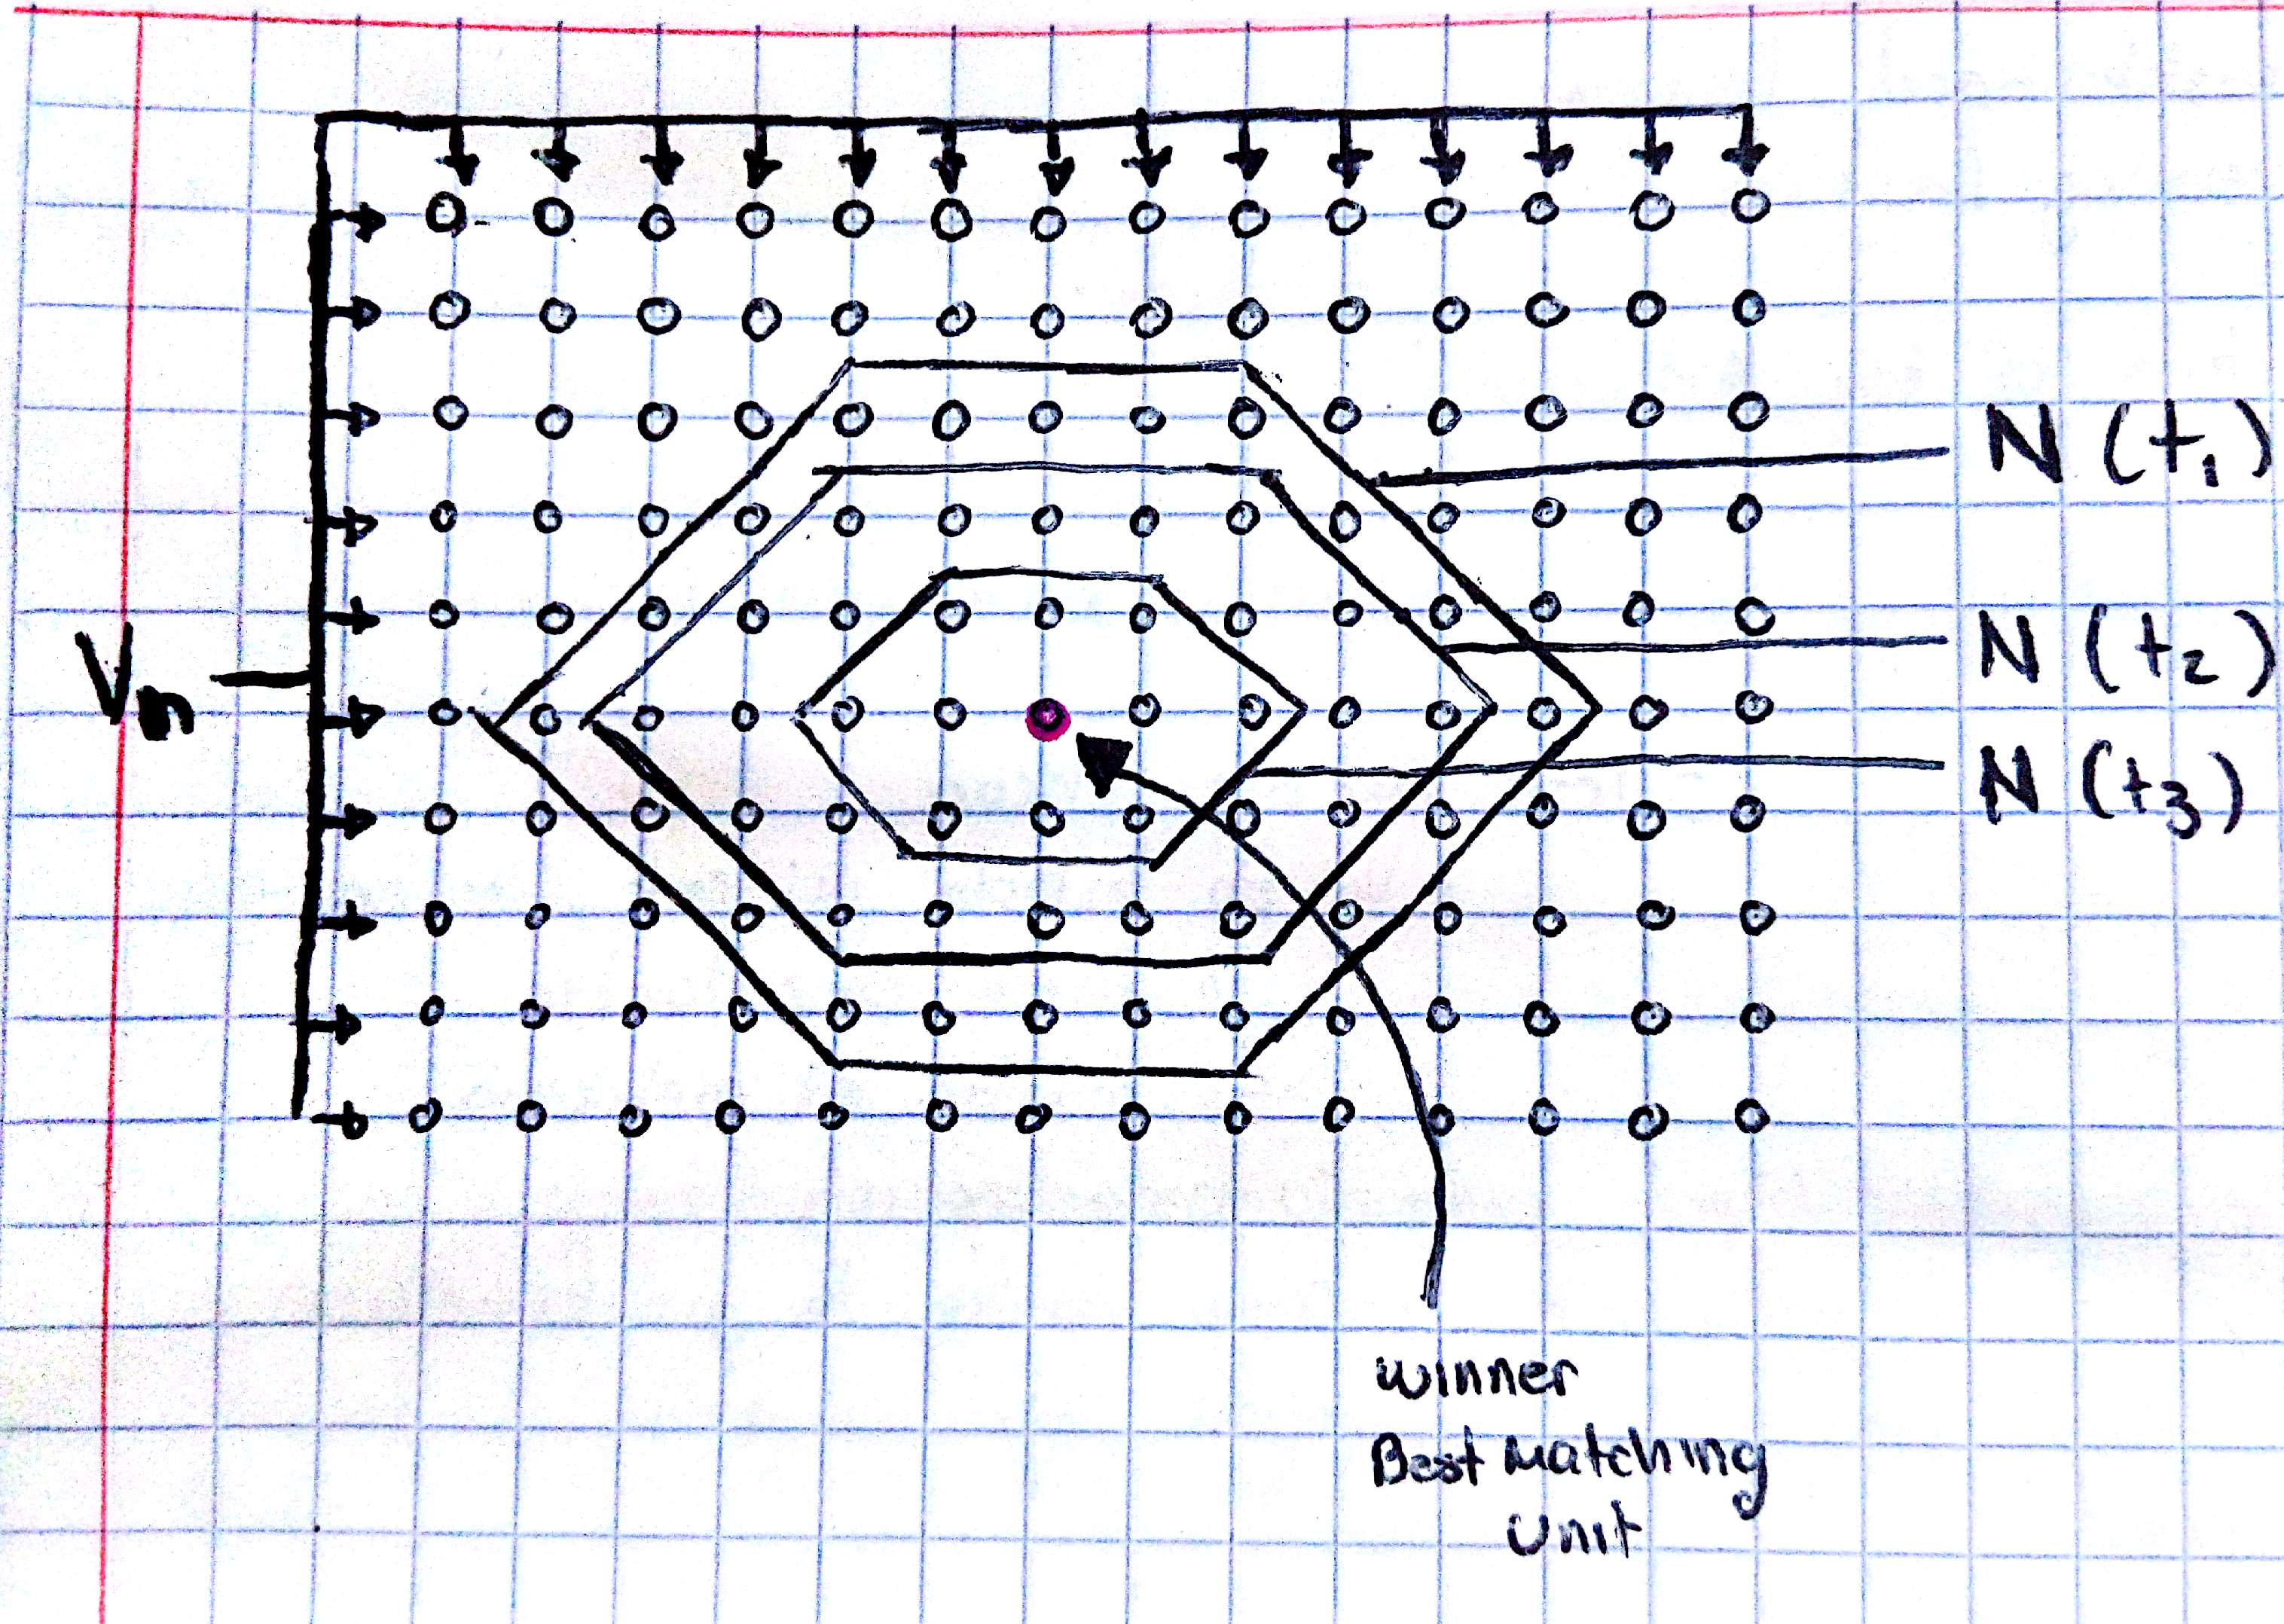 N (t₁)
N (t₂)
Vm
N (t₃)
winner
Best Matching
Unit